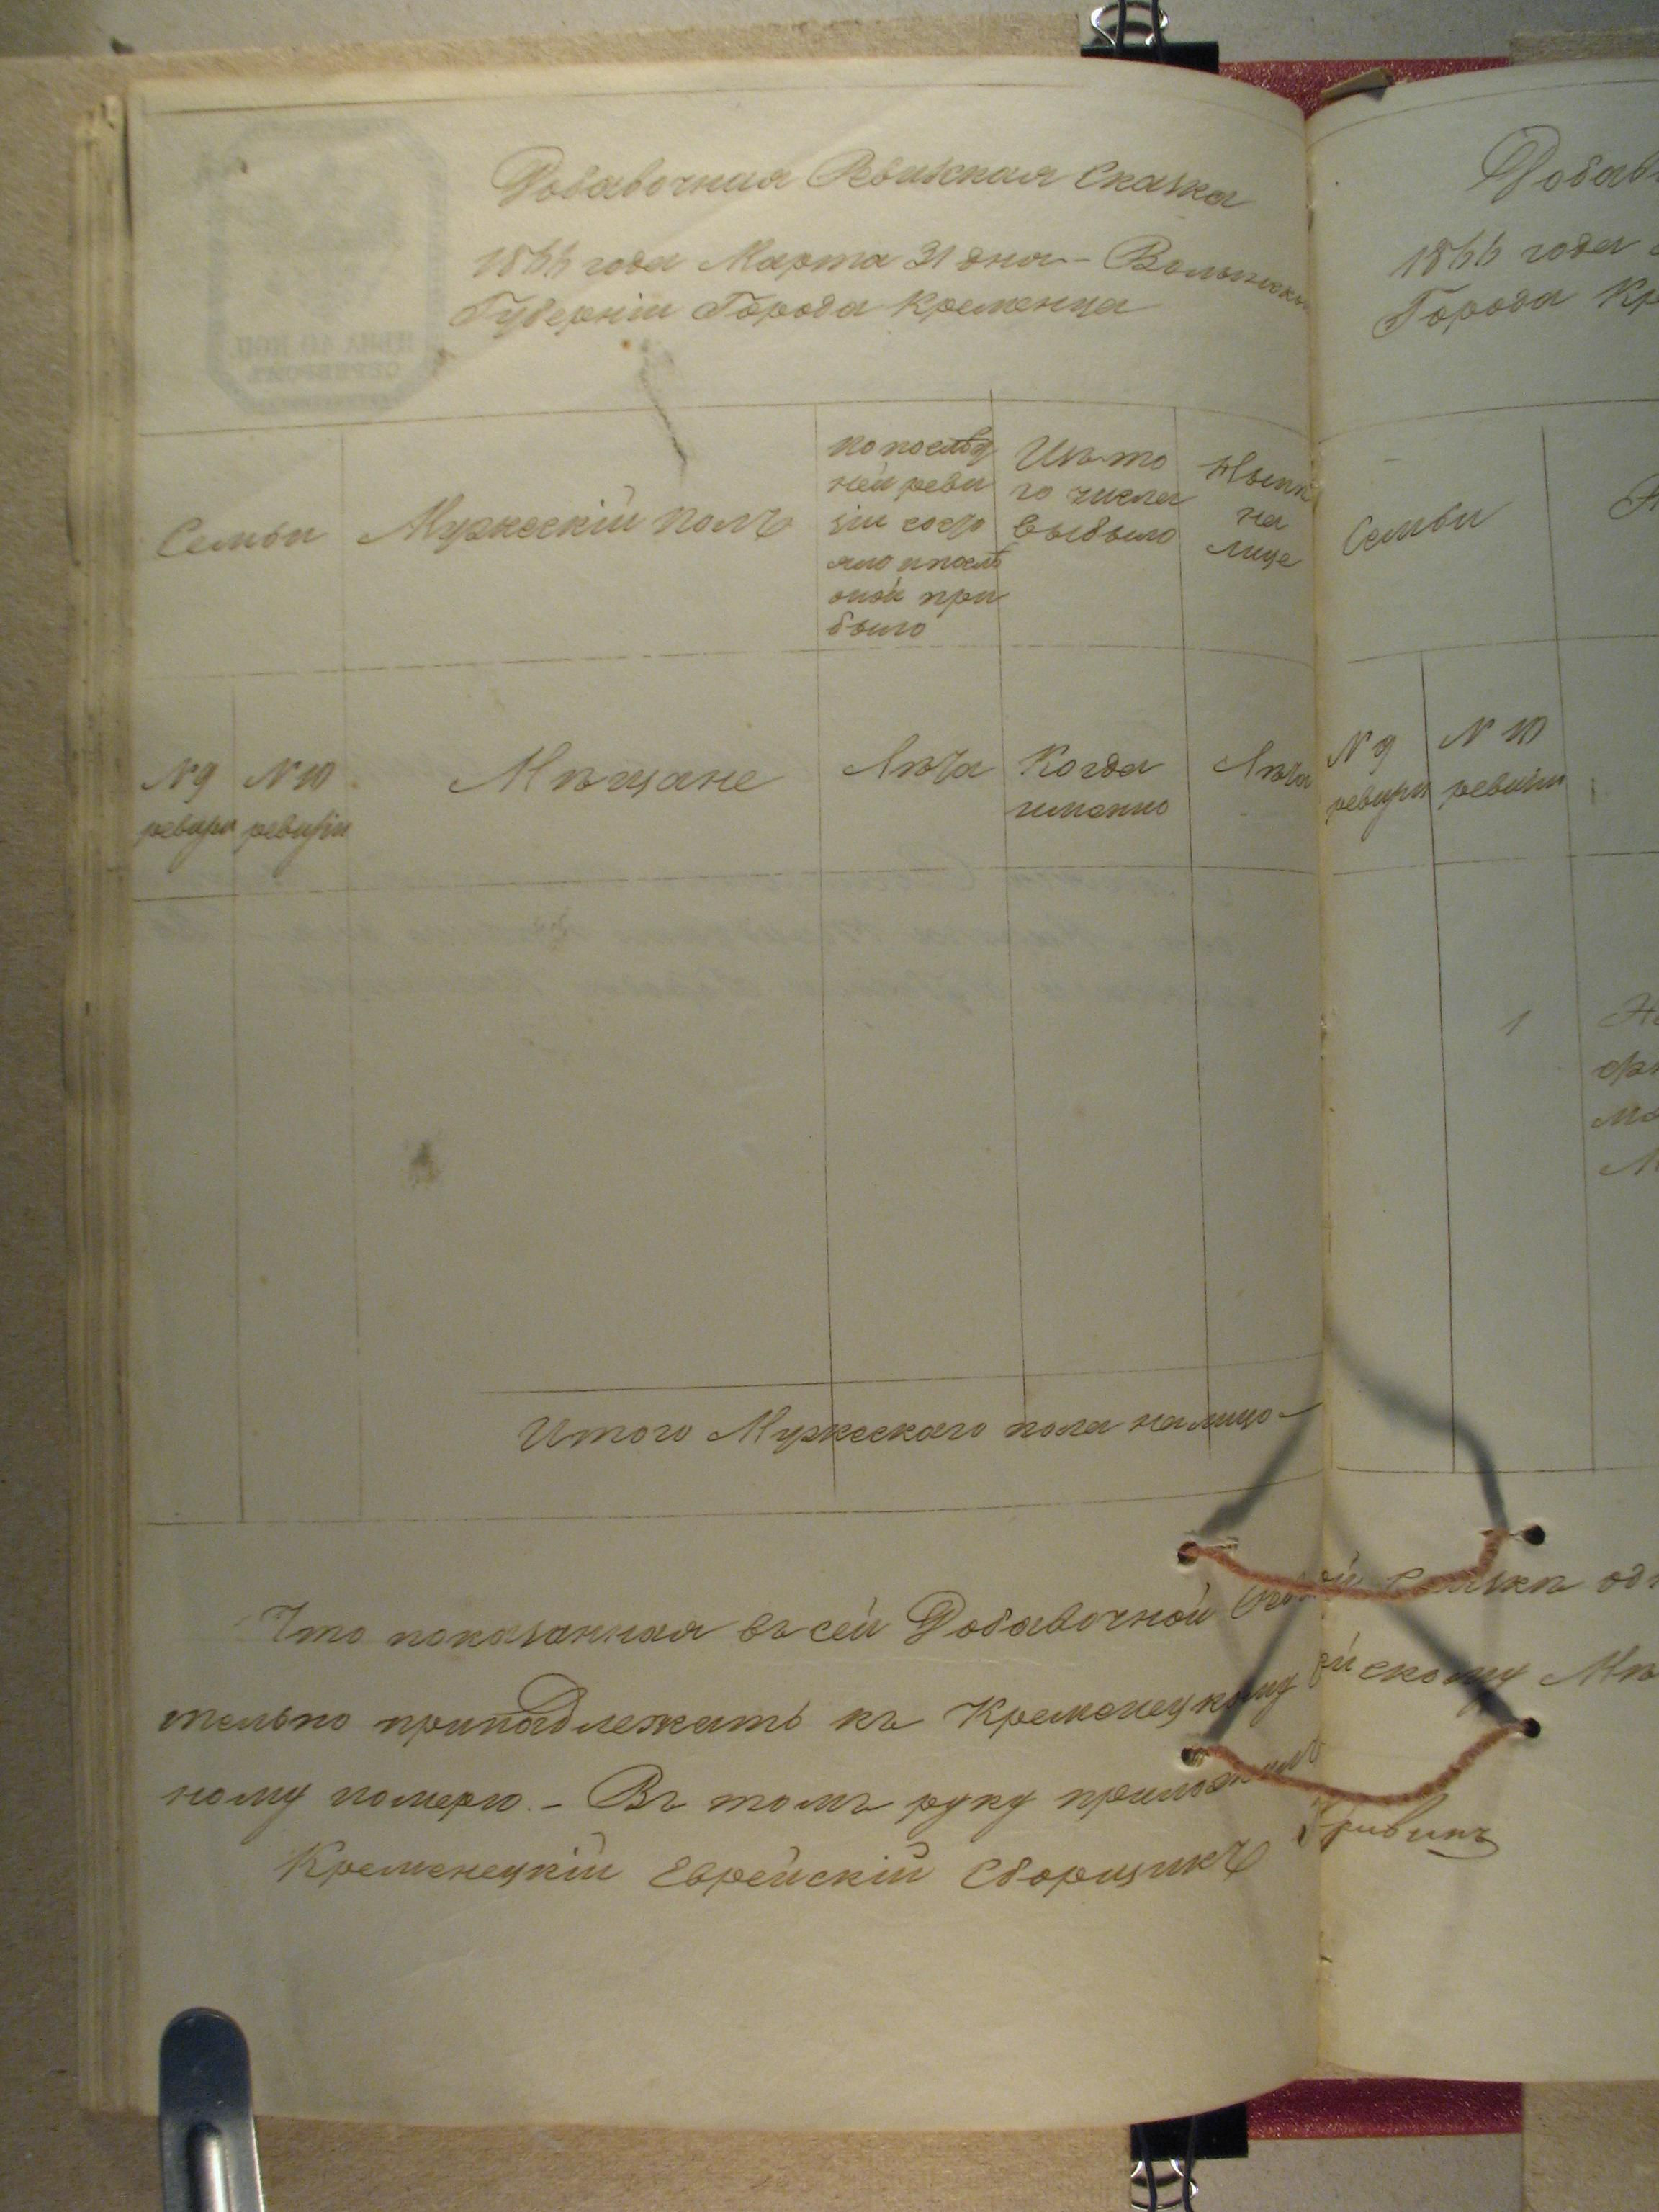 Добавочная Ревизская Сказка
1866 года Марта 31 дня – Волынской
Губерніи Города Кременца
Семьи
Мужескій полъ
По послѣд
ней реви
зіи состо
яло и послѣ
оной при
было
Изъ то
го числа
выбыло
Нынѣ
на
лице
№ 9
ревизіи
№ 10
ревизіи
Мѣщане
Лѣта
Когда
именно
Лѣта
Итого Мужескаго пола на лицо –
Что показанная въ сей Добавочной
тельно принадлежитъ къ Кременецкому
ному номеру. – Въ томъ руку приложилъ
Кременецкій Еврейскій Сборщикъ
Добав
1866 года
Города Кр
Семьи
№ 9
ревизіи
№ 10
ревизіи
1
Сказкѣ од
ейскому Мѣ